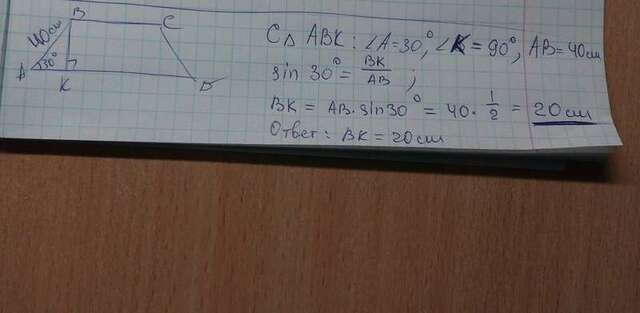 B
C
40см
A
30°
K
D
С△ ABK : ∠A=30°, ∠K = 90°, AB = 40см
sin 30° = BK/AB ;
BK = AB·sin30° = 40 · 1/2 = 20см
Ответ : BK = 20см